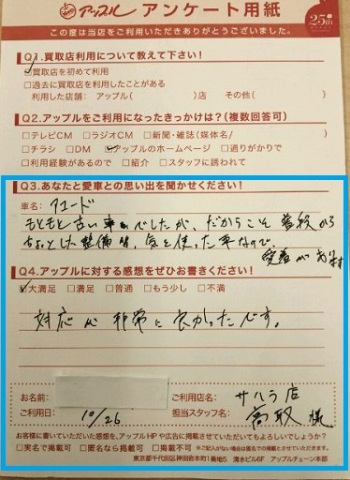 アップル アンケート用紙
25th
この度は当店をご利用いただきありがとうございました。
Q1.買取店利用について教えて下さい!
☑買取店を初めて利用
□過去に買取店を利用したことがある
利用した店舗: アップル( )店 その他( )
Q2.アップルをご利用になったきっかけは?(複数回答可)
□テレビCM □ラジオCM □新聞・雑誌(媒体名/ )
□チラシ □DM ☑アップルのホームページ □通りがかりで
□利用経験があるので □紹介 □スタッフに誘われて
Q3.あなたと愛車との思い出を聞かせてください!
車名: アコード
もともと古い車でしたが、だからこそ普段から
ちょっとした整備時、気を使った車なので、
愛着があります
Q4.アップルに対する感想をぜひお書きください!
☑大満足 □満足 □普通 □もう少し □不満
対応が非常に良かったです。
お名前:
ご利用店名: サハラ店
ご利用日: 10/26
担当スタッフ名: 高取 様
お客様に書いていただいた感想を、アップルHPや広告に掲載させていただいてもよろしいでしょうか?
□実名で掲載可 □匿名なら掲載可 □掲載不可 ※ご記入がない場合は匿名での掲載とさせていただきます。
東京都千代田区神田岩本町1番地5 清水ビル6F アップルチェーン本部